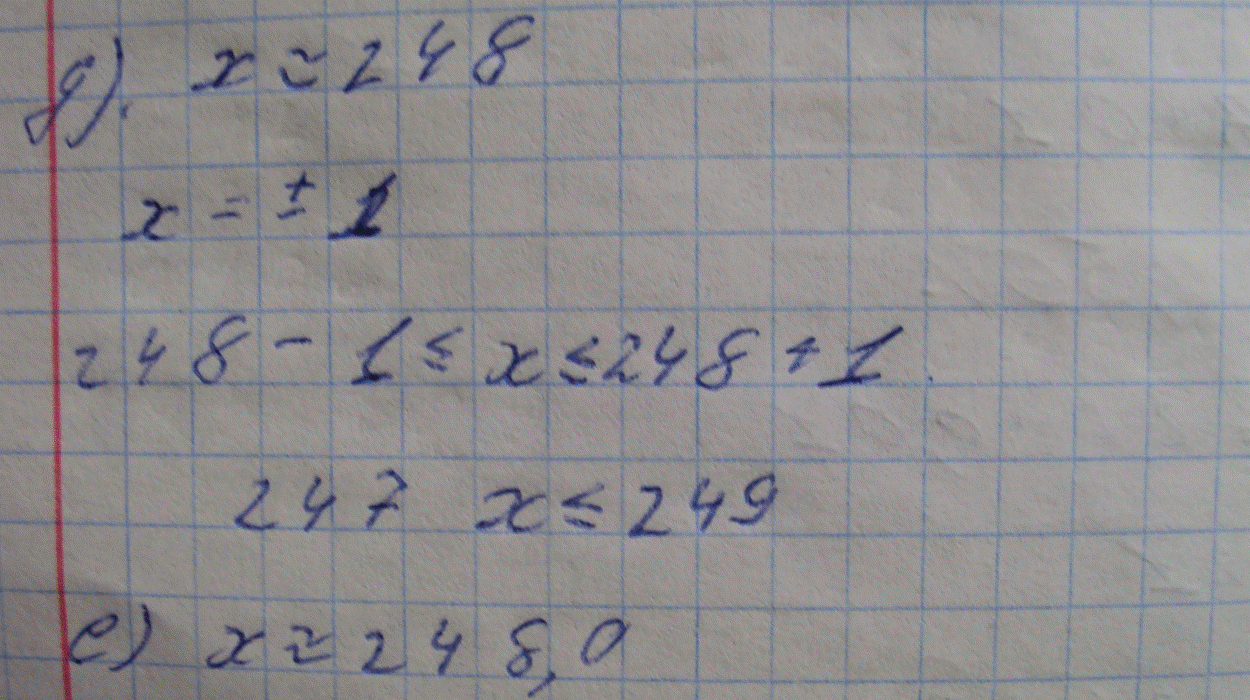 д). x ≈ 248
x = ± 1
248 - 1 ≤ x ≤ 248 + 1.
247 x ≤ 249
е) x ≈ 248,0